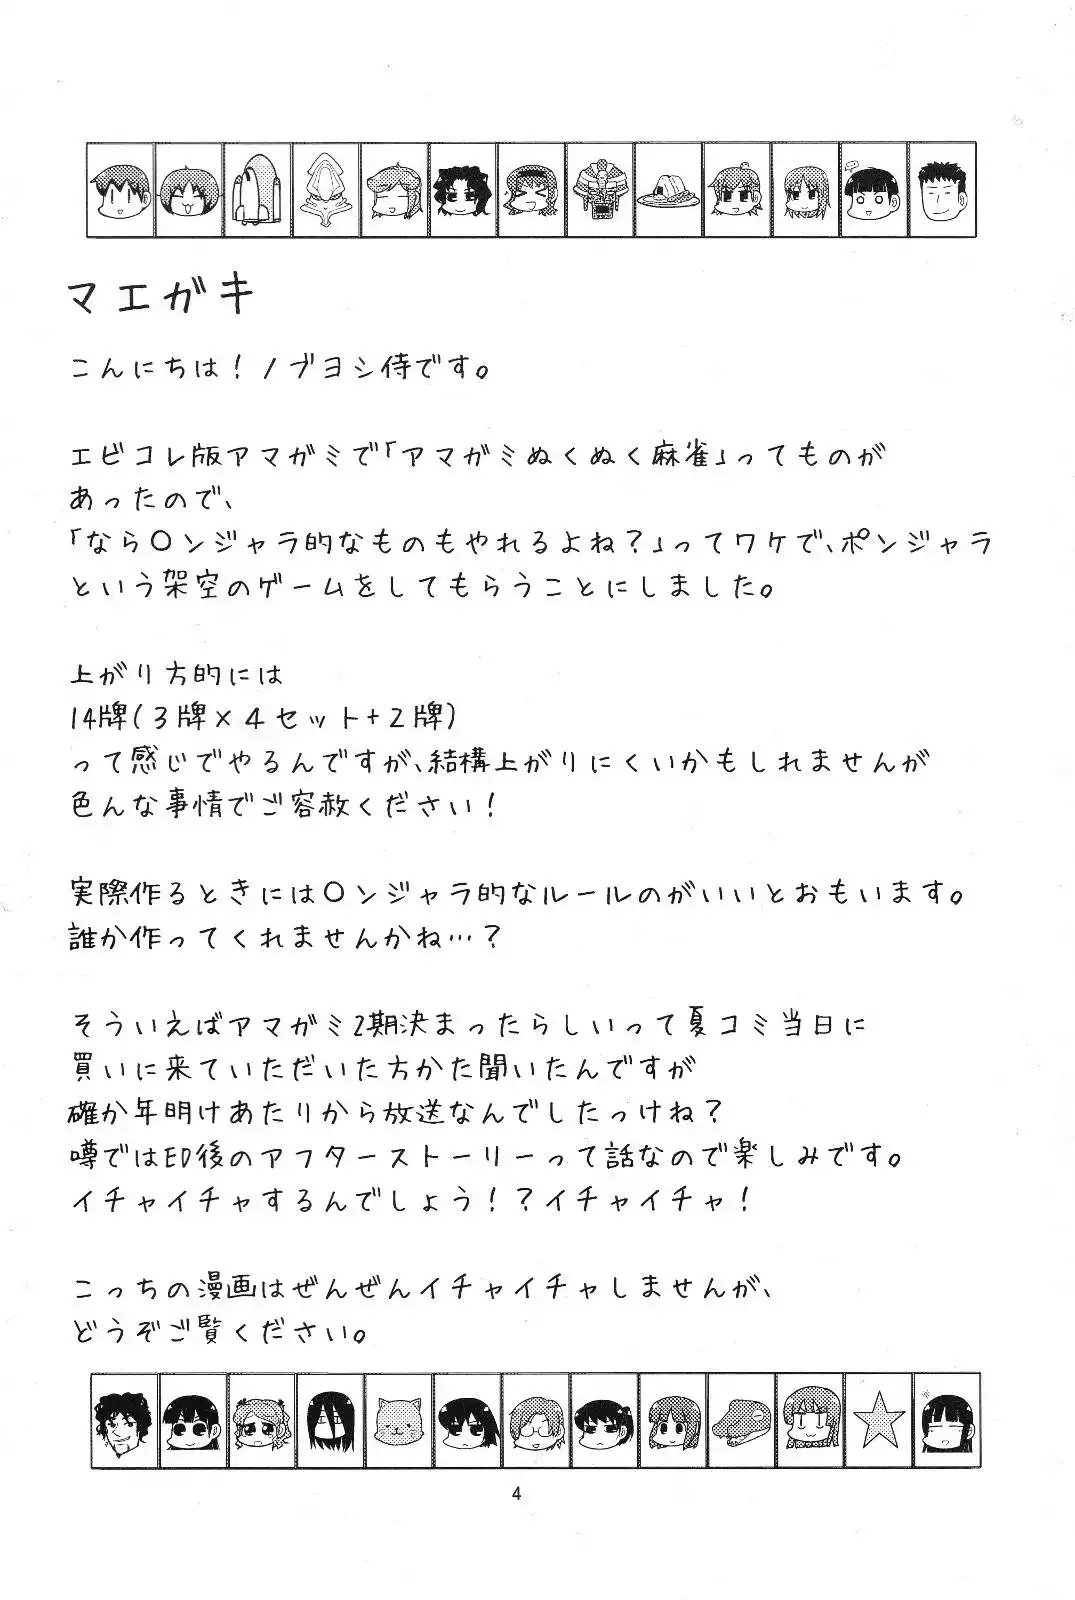 マエガキ
こんにちは!ノブヨシ侍です。
エビコレ版アマガミで「アマガミぬくぬく麻雀」ってものが
あったので、
「なら〇ンジャラ的なものもやれるよね?」ってワケで、ポンジャラ
という架空のゲームをしてもらうことにしました。
上がり方的には
14牌(3牌×4セット+2牌)
って感じでやるんですが、結構上がりにくいかもしれませんが
色んな事情でご容赦ください!
実際作るときには〇ンジャラ的なルールのがいいとおもいます。
誰か作ってくれませんかね…?
そういえばアマガミ2期決まったらしいって夏コミ当日に
買いに来ていただいた方かた聞いたんですが
確か年明けあたりから放送なんでしたっけね?
噂ではED後のアフターストーリーって話なので楽しみです。
イチャイチャするんでしょう!?イチャイチャ!
こっちの漫画はぜんぜんイチャイチャしませんが、
どうぞご覧ください。
4